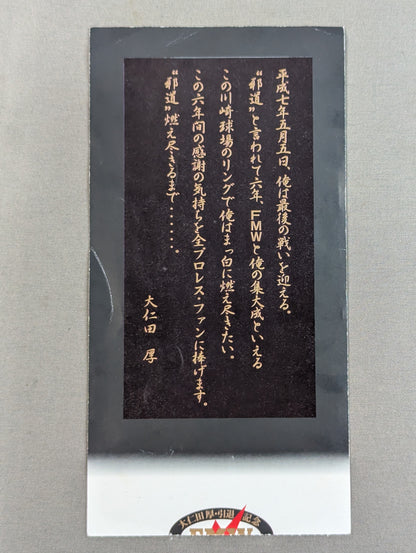 平成七年五月五日、俺は最後の戦いを迎える。
“邪道”と言われて六年、FMWと俺の集大成といえる
この川崎球場のリングで俺はまっ白に燃え尽きたい。
この六年間の感謝の気持ちを全プロレス・ファンに捧げます。
“邪道”燃え尽きるまで・・・・・・。
大仁田 厚
大仁田厚・引退 記念
FMW